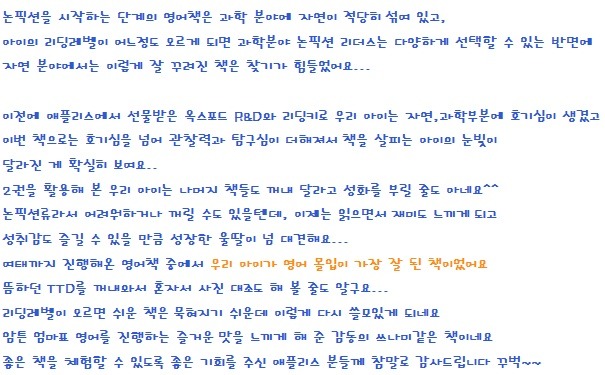 논픽션을 시작하는 단계의 영어책은 과학 분야에 자연이 적당히 섞여 있고,
아이의 리딩레벨이 어느정도 오르게 되면 과학분야 논픽션 리더스는 다양하게 선택할 수 있는 반면에
자연 분야에서는 이렇게 잘 꾸려진 책은 찾기가 힘들었어요...
이전에 애플리스에서 선물받은 옥스포드 R&D와 리딩키로 우리 아이는 자연,과학부분에 호기심이 생겼고
이번 책으로는 호기심을 넘어 관찰력과 탐구심이 더해져서 책을 살피는 아이의 눈빛이
달라진 게 확실히 보여요..
2권을 활용해 본 우리 아이는 나머지 책들도 꺼내 달라고 성화를 부릴 줄도 아네요^^
논픽션류라서 어려워하거나 꺼릴 수도 있을텐데, 이제는 읽으면서 재미도 느끼게 되고
성취감도 즐길 수 있을 만큼 성장한 울딸이 넘 대견해요...
여태까지 진행해온 영어책 중에서 우리 아이가 영어 몰입이 가장 잘 된 책이었어요
뜸하던 TTD를 꺼내와서 혼자서 사진 대조도 해 볼 줄도 알구요...
리딩레벨이 오르면 쉬운 책은 묵혀지기 쉬운데 이렇게 다시 쓸모있게 되네요
암튼 엄마표 영어를 진행하는 즐거운 맛을 느끼게 해 준 감동의 쓰나미같은 책이네요
좋은 책을 체험할 수 있도록 좋은 기회를 주신 애플리스 분들께 참말로 감사드립니다 꾸벅~~